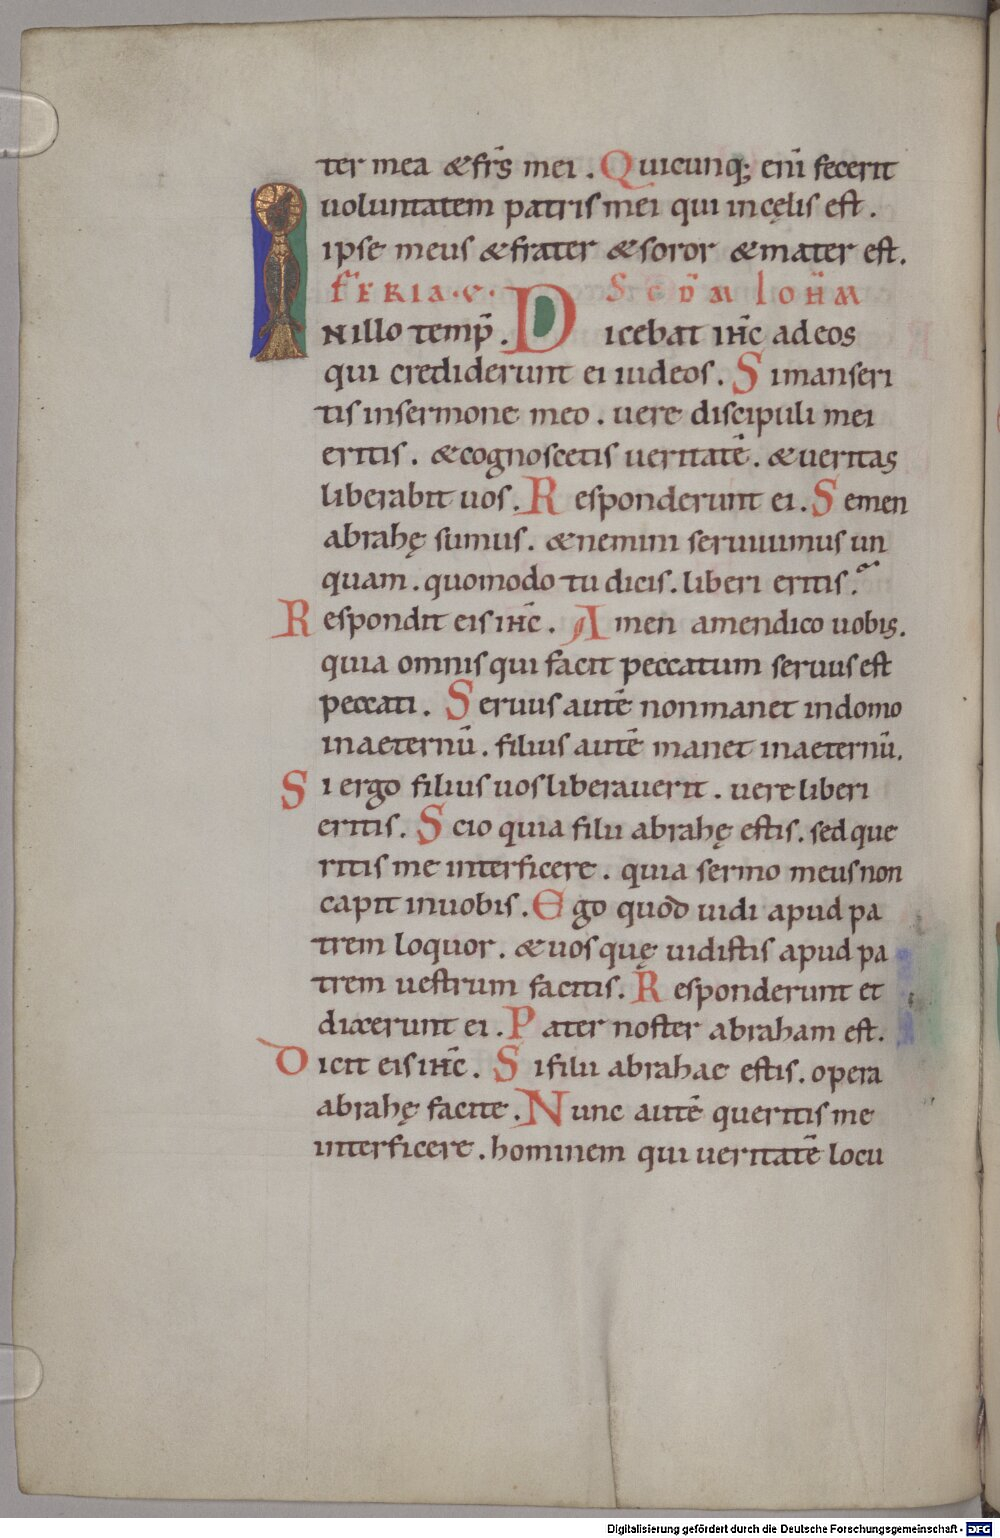 ter mea & fr̄s mei. Quicunq; eni̅ fecerit
uoluntatem patris mei qui in cęlis est.
ipse meus & frater & soror & mater est.
FERIA·V· SCDM IOHM
IN illo temp̄. Dicebat ihc̄ ad eos
qui crediderunt ei iudeos. Si manseri
tis in sermone meo. uere discipuli mei
eritis. & cognoscetis ueritatē. & ueritas
liberabit uos. Responderunt ei. Semen
abrahę sumus. & nemini seruiuimus un
quam. quomodo tu dicis. liberi eritis?
Respondit eis ihc̄. Amen amen dico uobis.
quia omnis qui facit peccatum seruus est
peccati. Seruus autē non manet in domo
in aeternū. filius autē manet in aeternū.
Si ergo filius uos liberauerit. uere liberi
eritis. Scio quia filii abrahę estis. sed que
ritis me interficere. quia sermo meus non
capit in uobis. Ego quod uidi apud pa
trem loquor. & uos quę uidistis apud pa
trem uestrum facitis. Responderunt et
dixerunt ei. Pater noster abraham est.
Dicit eis ihc̄. Si filii abrahae estis. opera
abrahę facite. Nunc autē queritis me
interficere. hominem qui ueritatē locu
Digitalisierung gefördert durch die Deutsche Forschungsgemeinschaft - DFG